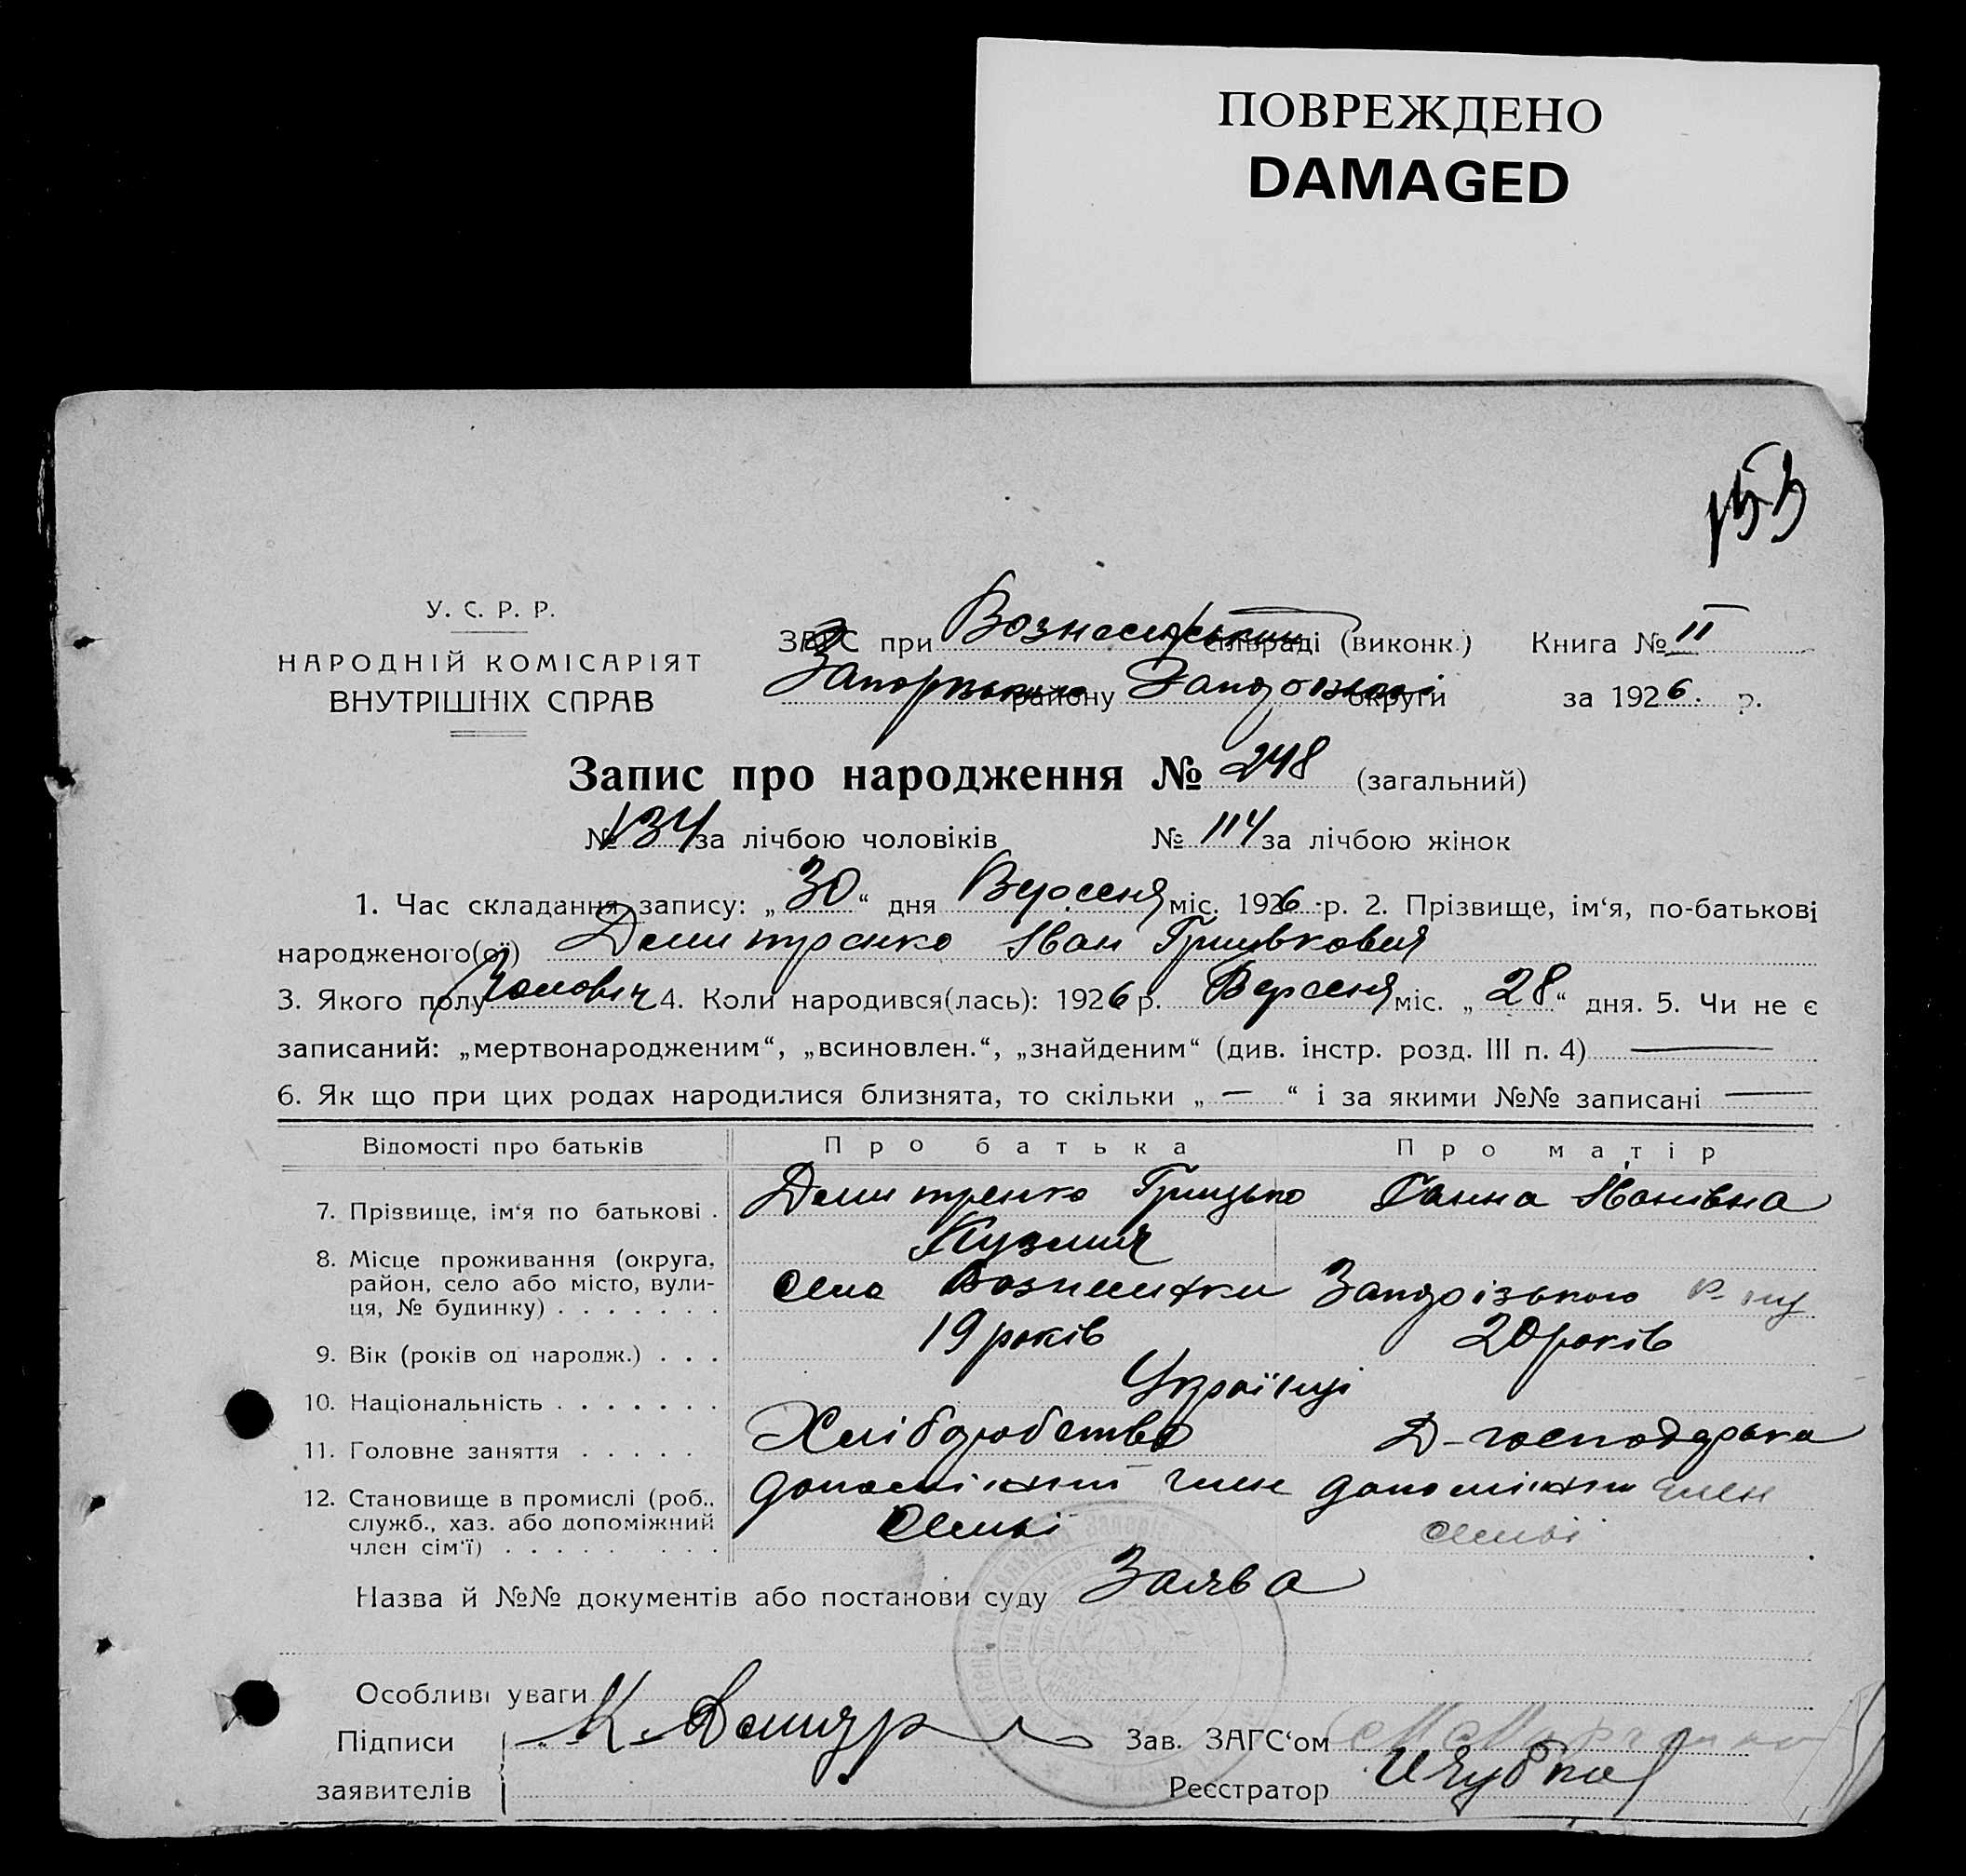 ПОВРЕЖДЕНО
DAMAGED
153
У. С. Р. Р.
НАРОДНІЙ КОМІСАРІЯТ
ВНУТРІШНІХ СПРАВ
ЗАГС при сільраді (виконк.) Книга № II
району округи за 1926. р.
Запис про народження № 248 (загальний)
№ 134 за лічбою чоловіків № 114 за лічбою жінок
1. Час складання запису: „30“ дня Вересня міс. 1926 р. 2. Прізвище, ім‘я, по-батькові
народженого(ої) Демитренко Іван Грицькович
3. Якого полу Чоловіч 4. Коли народився(лась): 1926 р. Вересня міс. „28“ дня. 5. Чи не є
записаний: „мертвонародженим“, „всиновлен.“, „знайденим“ (див. інстр. розд. III п. 4) —
6. Як що при цих родах народилися близнята, то скільки „—“ і за якими №№ записані —
Відомості про батьків Про батька Про матір
7. Прізвище, ім‘я по батькові . Демитренко Грицько Ганна Іванівна
Кузмич
8. Місце проживання (округа,
район, село або місто, вули-
ця, № будинку) . . . . . . . Село Вознесенки Запорізького
9. Вік (років од народж.) . . . 19 років 20 років
10. Національність . . . . . . . Українці
11. Головне заняття . . . . . Хліборобство Д-господарька
12. Становище в промислі (роб.,
служб., хаз. або допоміжний
член сім‘ї) . . . . . . . . допоміжний член допоміжний член
семьї семьї
Назва й №№ документів або постанови суду Заява
Особливі уваги
Підписи К. Демитр
заявителів
Зав. ЗАГС‘ом
Реєстратор